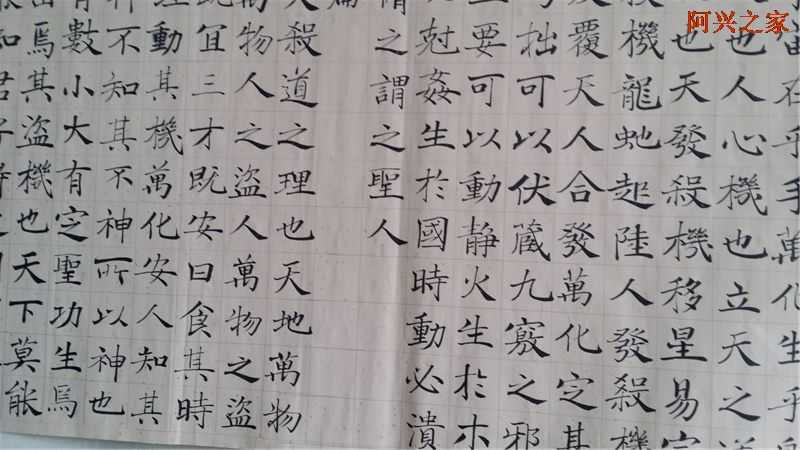 阿兴之家
宙在乎手萬化生乎
也人心機也立天之道
也天發殺機移星易宿
機龍虵起陸人發殺機
反覆天人合發萬化定其
拙可以伏藏九竅之邪
要可以動靜火生於木
尅姦生於國時動必潰
之謂之聖人
篇
殺道之理也天地萬物
萬物人之盜人萬物之盜
既宜三才既安曰食其時
理動其機萬化安人知其
神不知其不神所以神也
有數小大有定聖功生焉
焉其盜機也天下莫能
知君子得